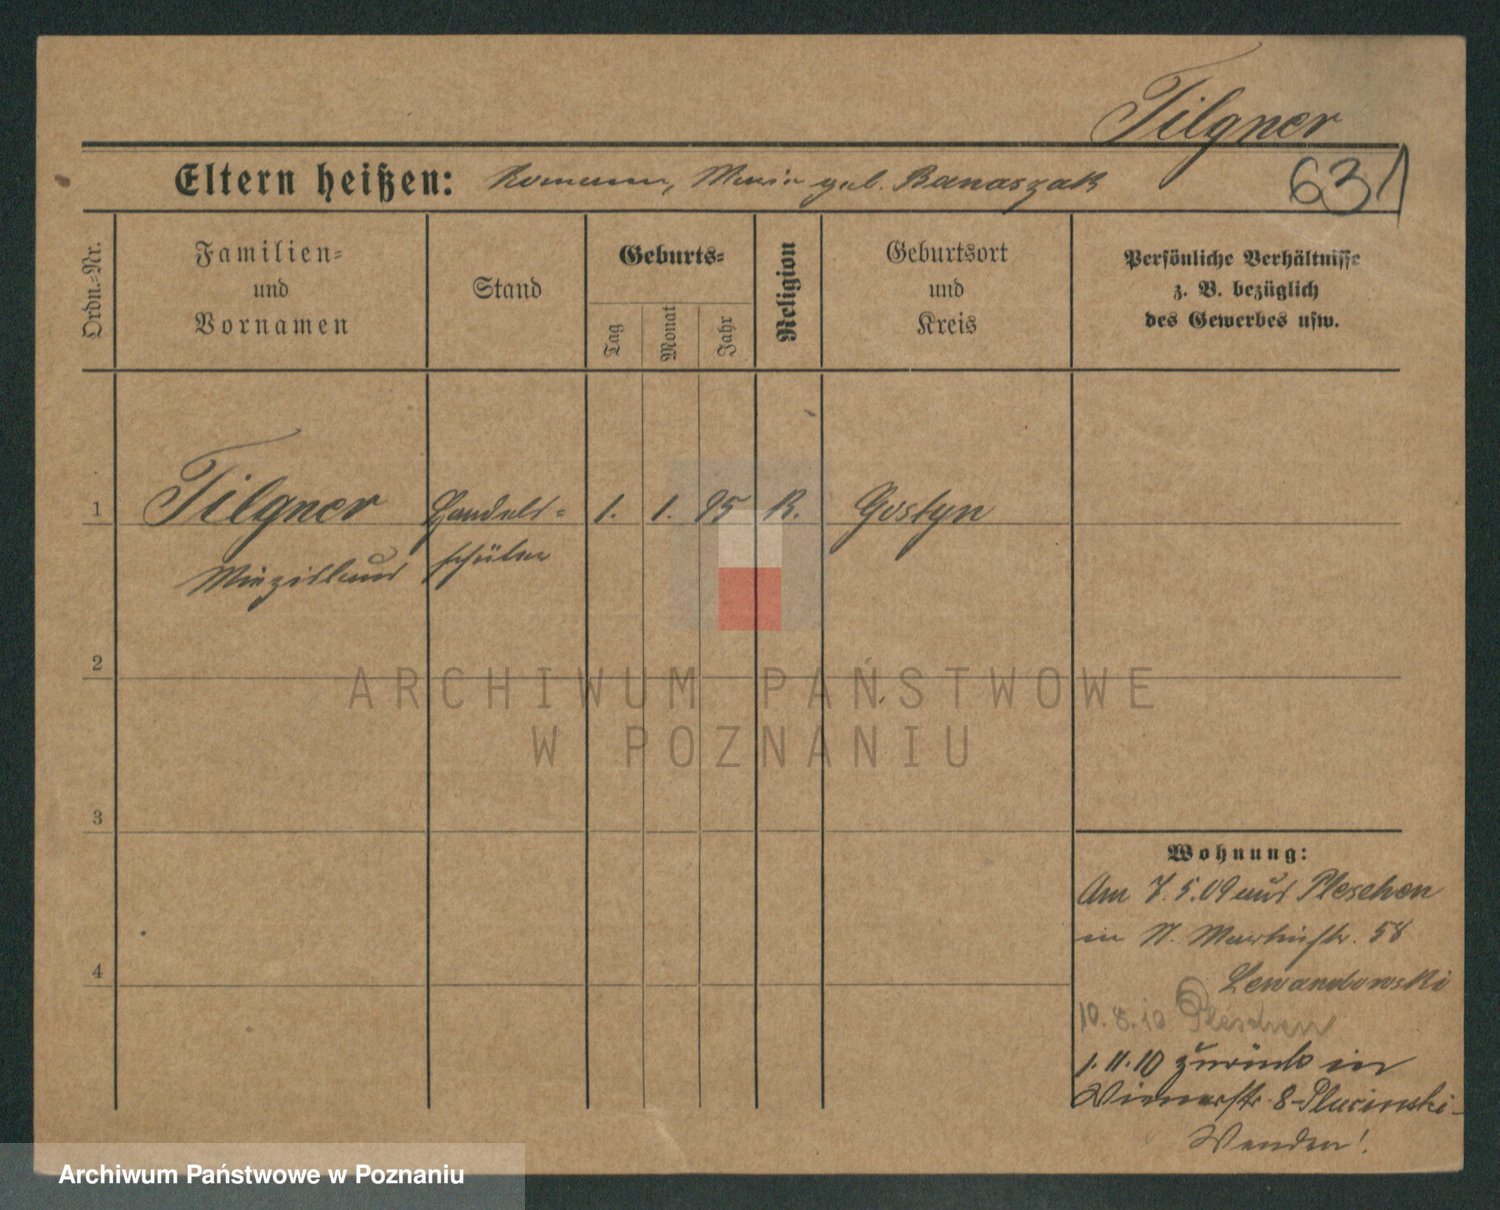 Tilgner
Eltern heißen: Roman, Maria geb. Banaszak
631
Ordn.-Nr.
Familien-
und
Vornamen
Stand
Geburts-
Tag
Monat
Jahr
Religion
Geburtsort
und
Kreis
Persönliche Verhältnisse
z. B. bezüglich
des Gewerbes usw.
1 Tilgner Handels- 1. 1. 95 K. Gostyn
schüler
2
3
4
Wohnung:
Am 7.5.09 aus Pleschen
in St. Martinstr. 58
Lewandowski
10.8.10 Pleschen
1.11.10 zurück in
8 Plucinski
Wenden!
ARCHIWUM PAŃSTWOWE
W POZNANIU
Archiwum Państwowe w Poznaniu